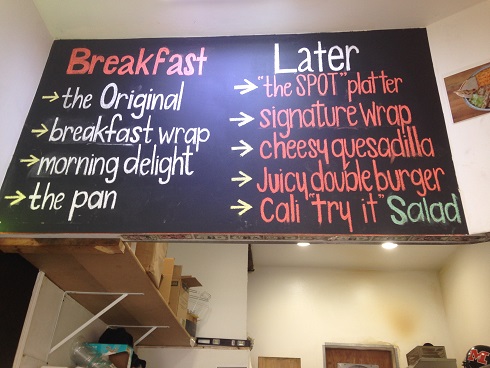 Breakfast
the Original
breakfast wrap
morning delight
the pan
Later
"the SPOT" platter
signature wrap
cheesy quesadilla
Juicy double burger
Cali "try it" Salad